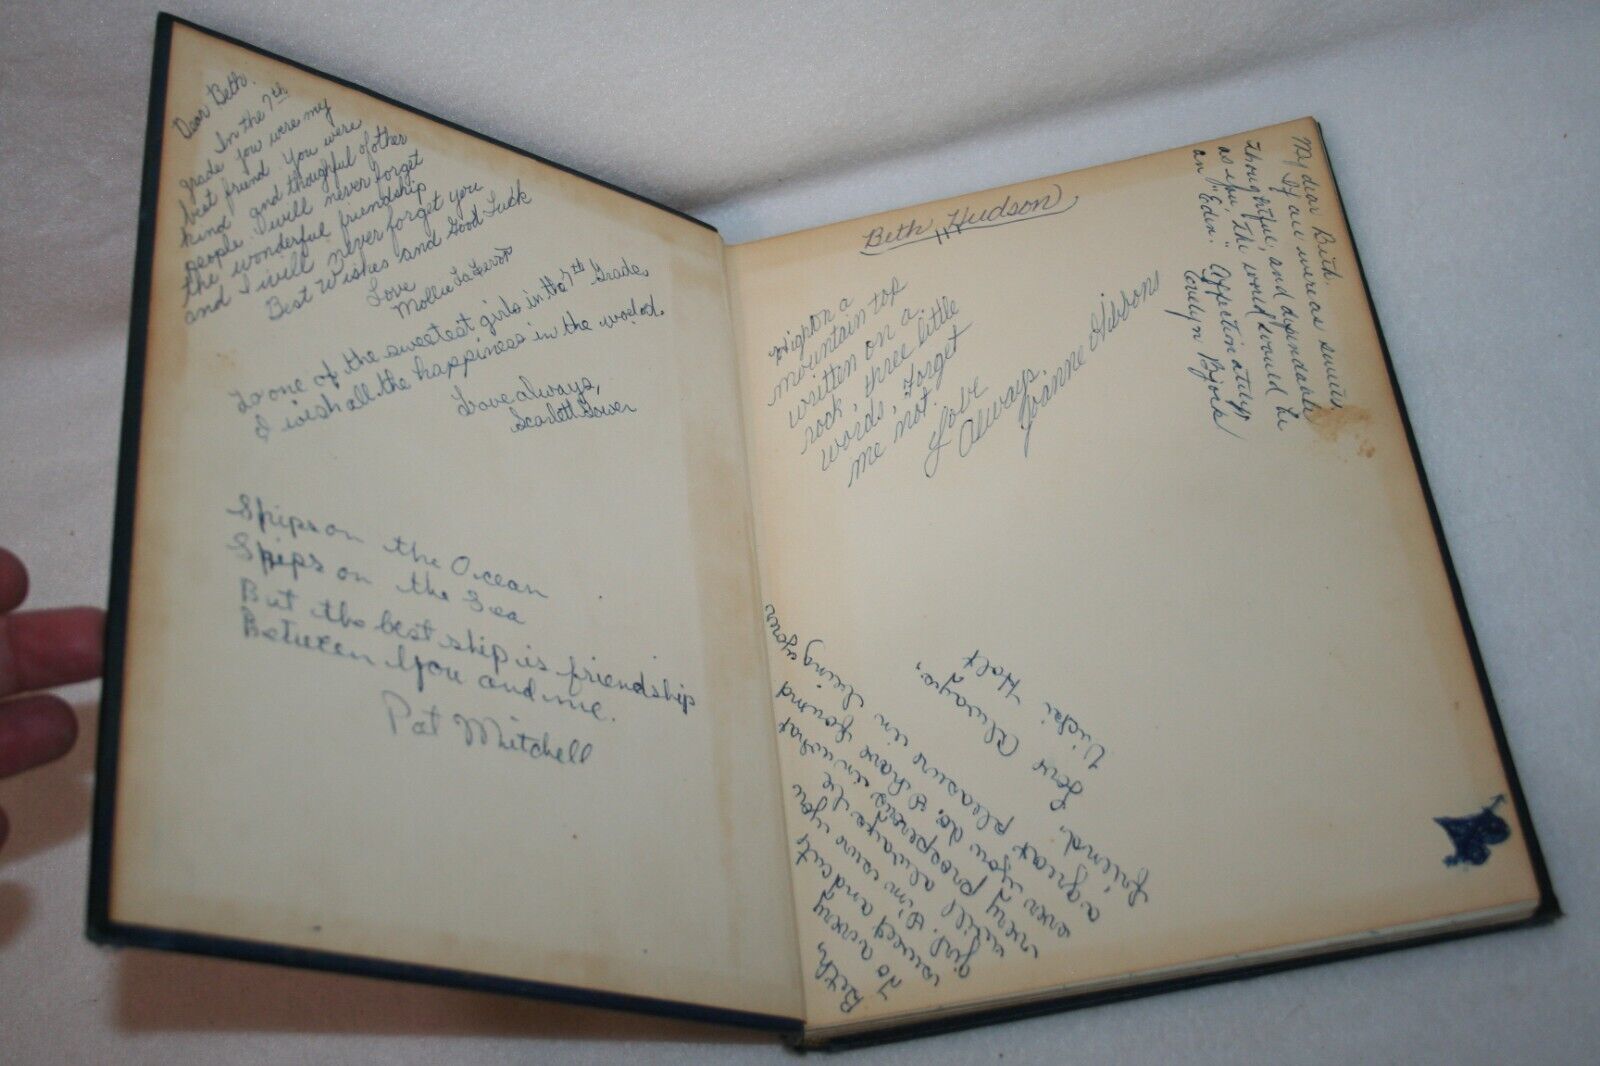 Dear Beth.
In the 7th
grade you were my
best friend. You were
kind and thoughtful of other
people. I will never forget
the wonderful friendship
and I will never forget you
Best Wishes and Good Luck
Love
Mollie
To one of the sweetest girls in the 7th Grade,
I wish all the happiness in the world.
Love always,
Scarlett Gower
Ships on the Ocean
Ships on the Sea
But the best ship is friendship
Between You and me.
Pat Mitchell
Beth Hudson
High on a
mountain top
written on a
rock, three little
words, Forget
me not.
Love
Always
Joanne Gibbons
My dear Beth,
If all were as
thoughtful, and dependable
as you, the world would be
an "Eden." Affectionately,
Evelyn Bjork
Beth,
To a very
sweet and cute
girl. I'm sure you
will always be
very prosperous in what
ever you do. I have found
a great pleasure in being your
friend.
Love Always,
Vicki Holt